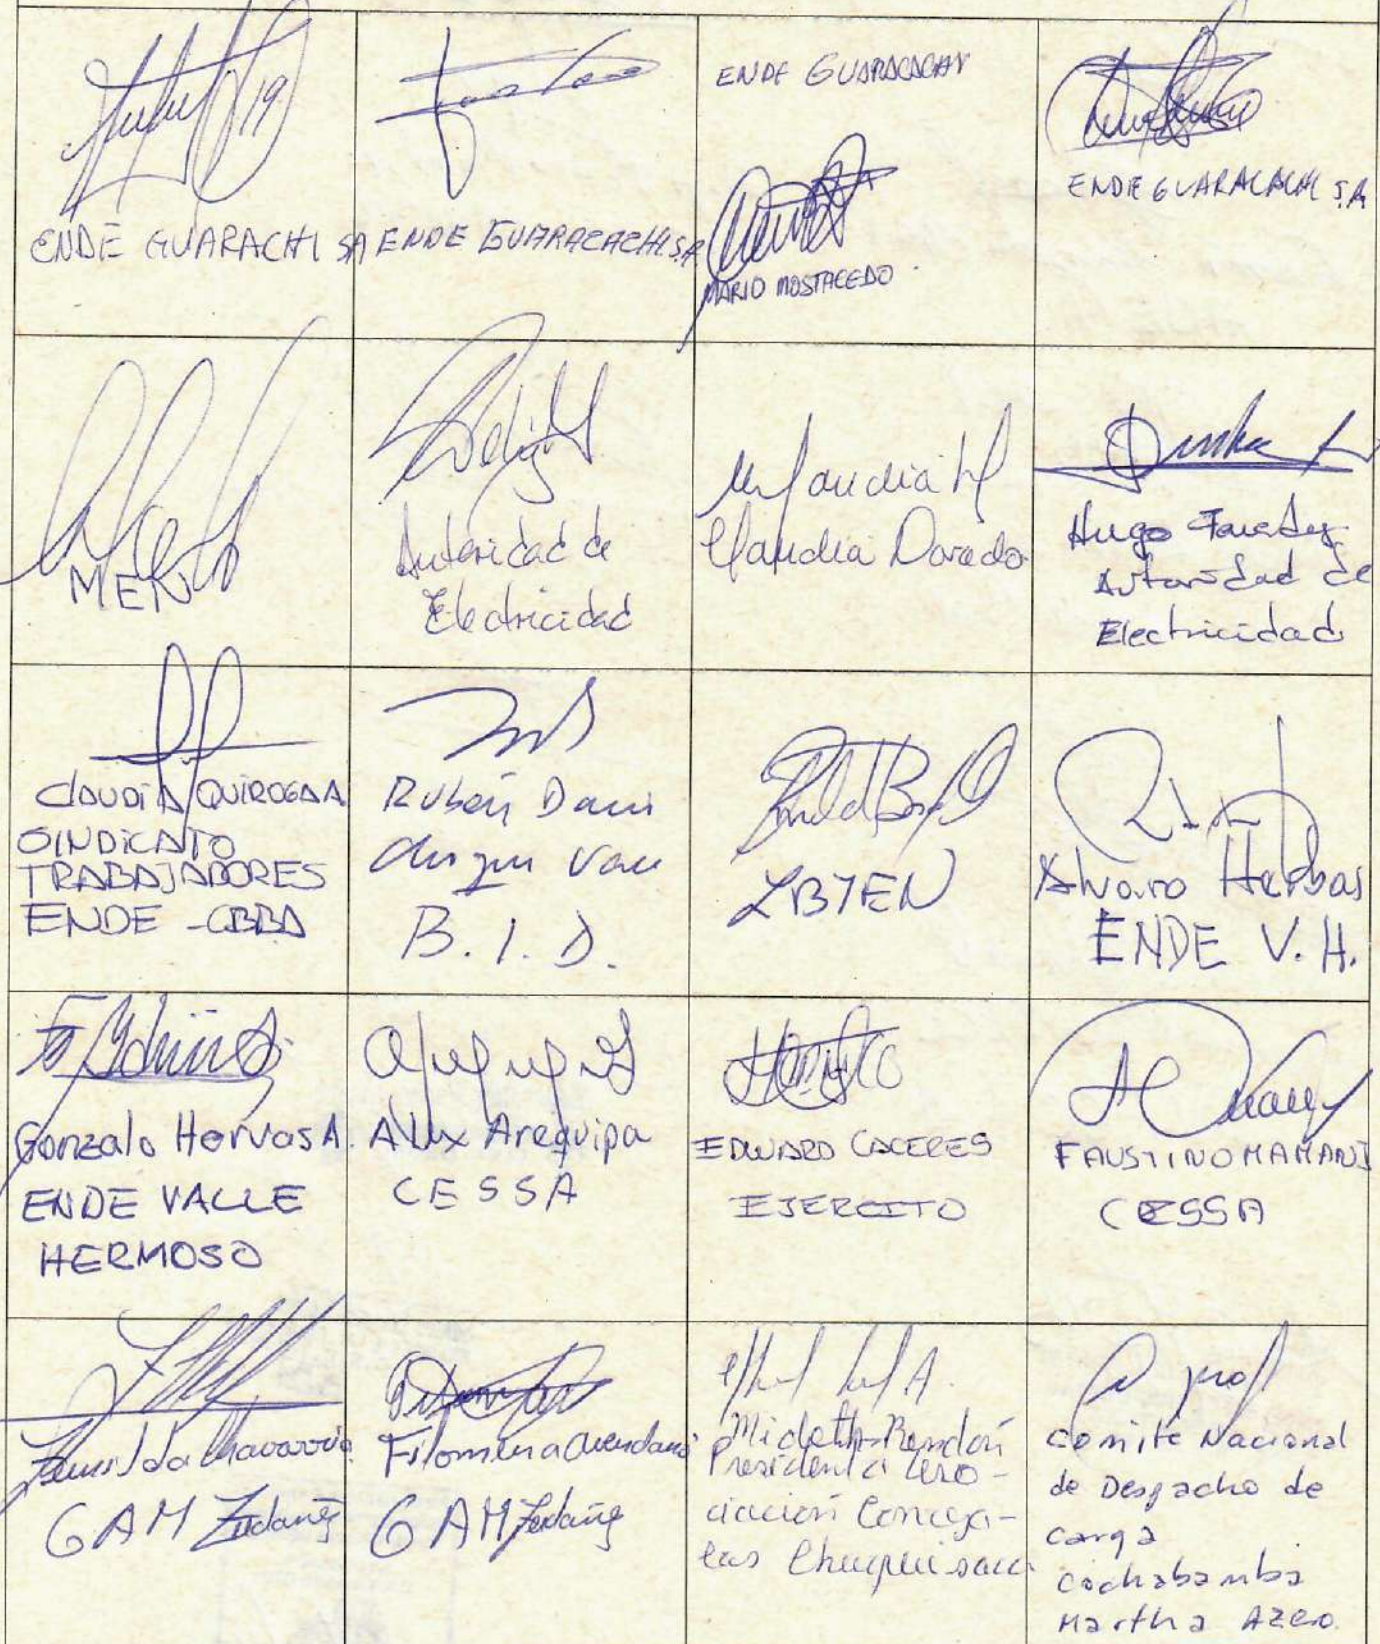 ENDE GUARACHI SA
ENDE GUARACACHI S.A.
ENDE GUARACACHI
MARIO MOSTACEDO
ENDE GUARACACHI S.A
MEN
Autoridad de
Electricidad
Claudia Dorado
Hugo
Autoridad de
Electricidad
CLAUDIA QUIROGA A
SINDICATO
TRABAJADORES
ENDE - CBBA
Rubén
B. I. D.
Alvaro Herbas
ENDE V. H.
Gonzalo Hervas A.
ENDE VALLE
HERMOSO
Alex Arequipa
CESSA
EDWARD CACERES
EJERCITO
FAUSTINO MAMANI
CESSA
Chavarria
GAM Zudañez
Filomena Avendaño
GAM Zudañez
Rendón
Presidenta Aso-
ciación Conceja-
las Chuquisaca
Comité Nacional
de Despacho de
Carga
Cochabamba
Martha Azero